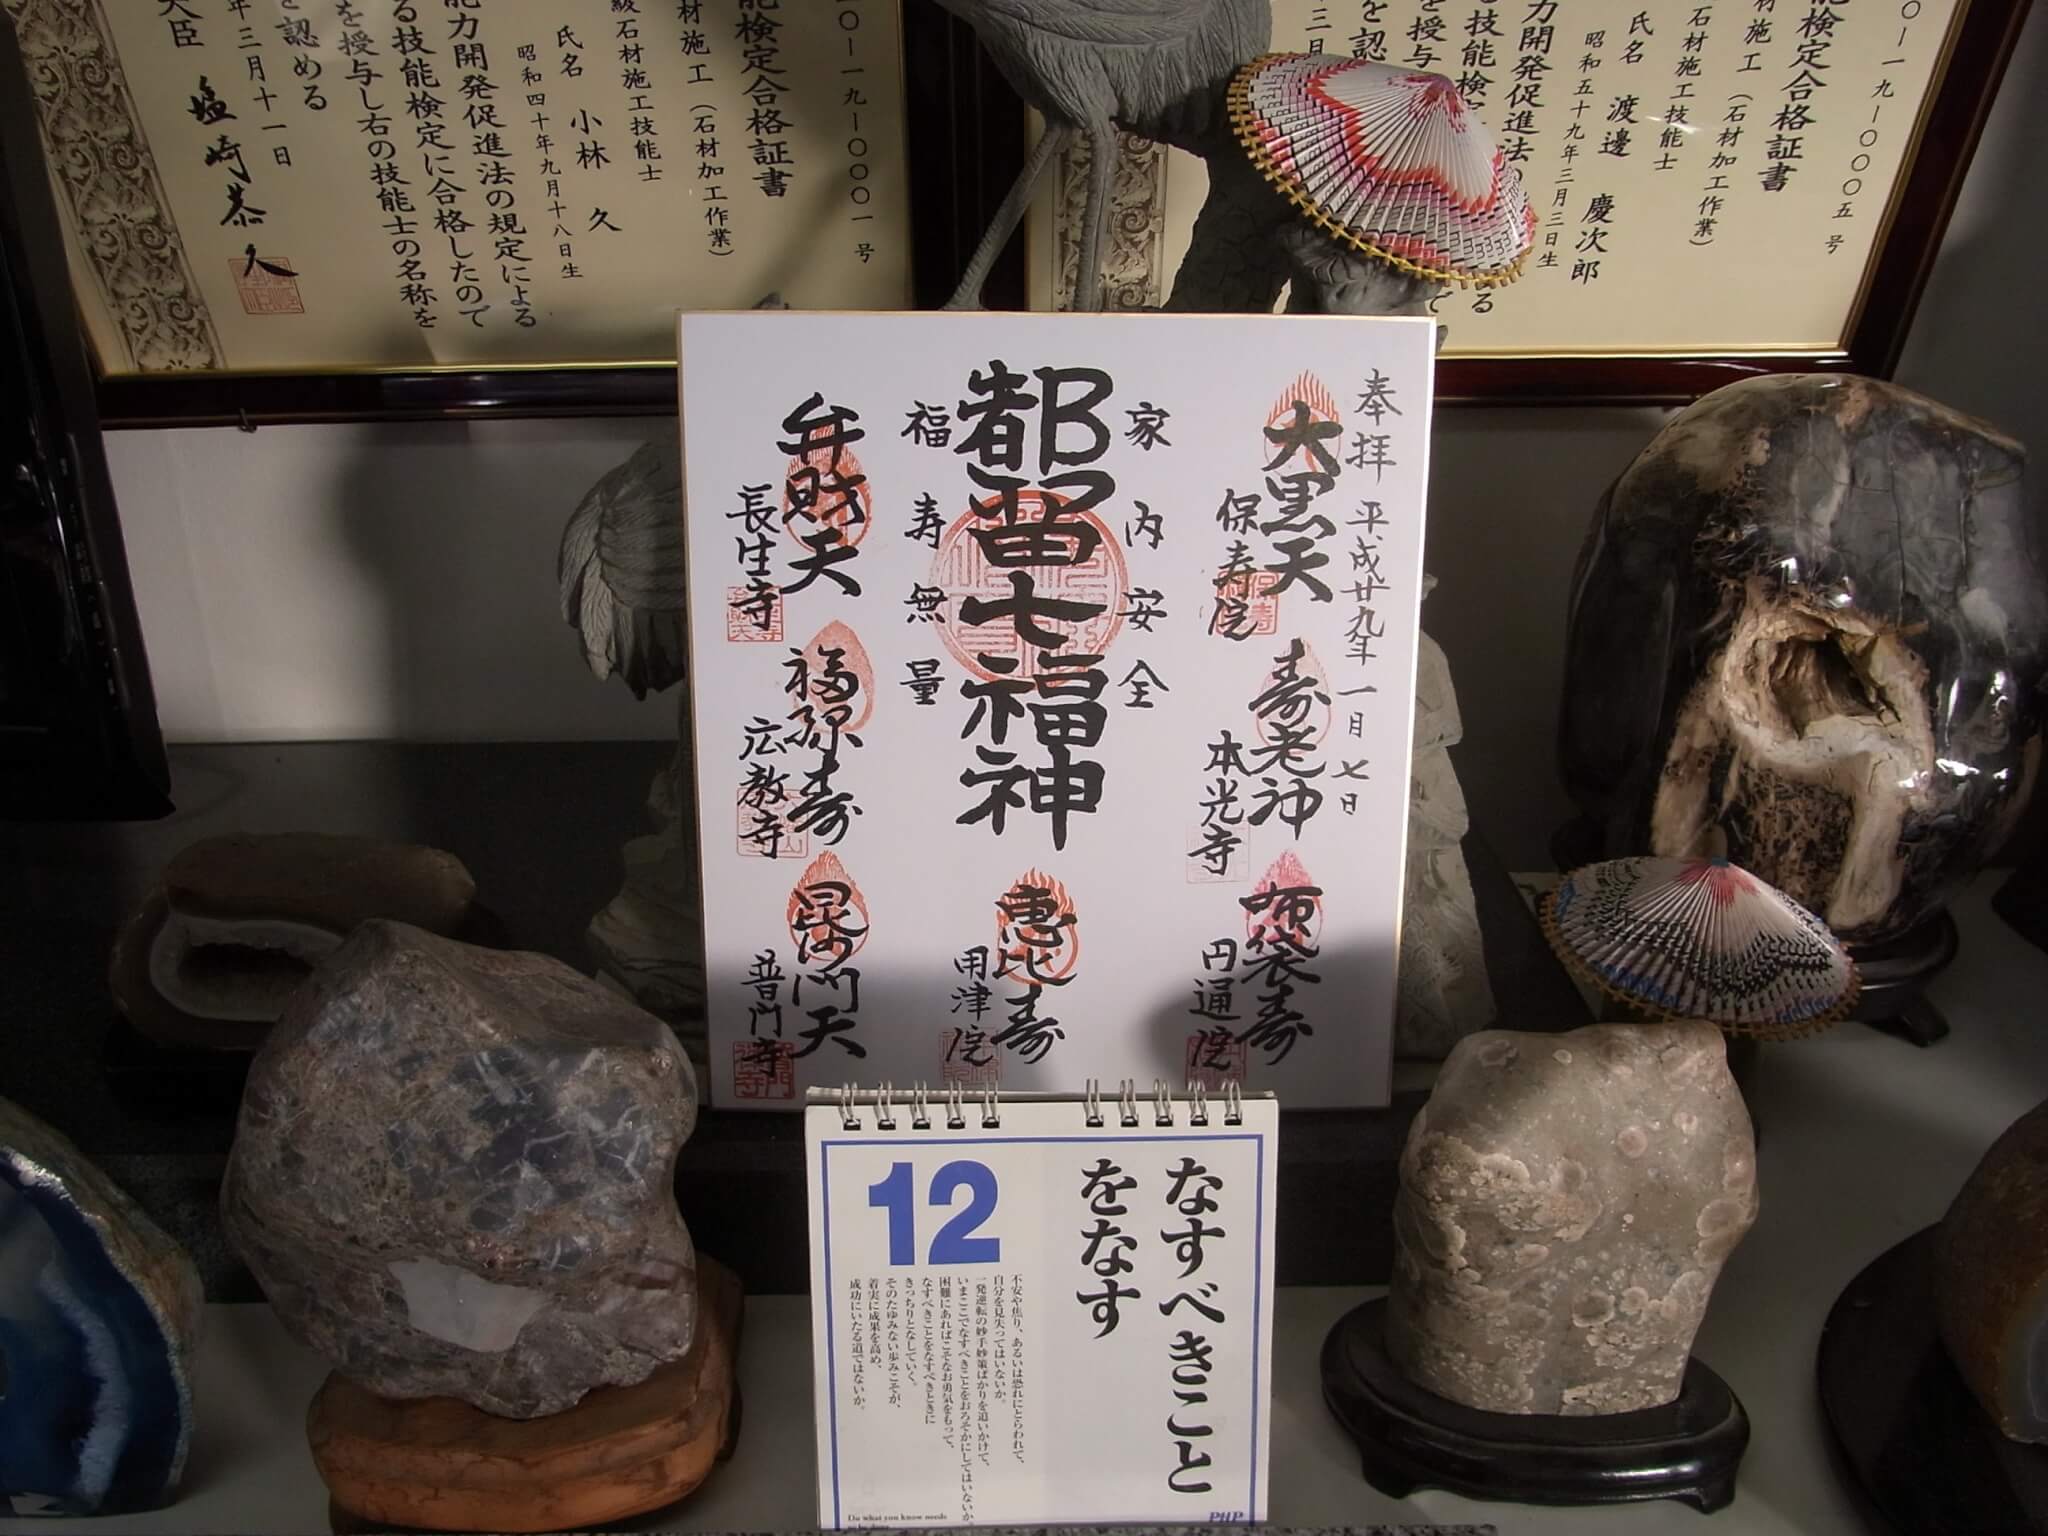 能検定合格証書
材施工（石材加工作業）
級石材施工技能士
氏名 小林 久
昭和四十年九月十八日生
能力開発促進法の規定による
る技能検定に合格したので
を授与し右の技能士の名称を
を認める
年三月十一日
大臣 塩崎恭久
〇ー一九ー〇〇〇一号
〇ー一九ー〇〇〇五号
能検定合格証書
材施工（石材加工作業）
石材施工技能士
氏名 渡邊 慶次郎
昭和五十九年三月三日生
力開発促進法の
る技能検定
を授与
を認
奉拝 平成廿九年一月七日
大黒天
保寿院
寿老神
本光寺
布袋寿
円通院
家内安全
都留七福神
福寿無量
恵比寿
用津院
弁財天
長生寺
福禄寿
広教寺
毘沙門天
普門寺
なすべきこと
をなす
12
不安や焦り、あるいは恐れにとらわれて、
自分を見失ってはいないか。
一発逆転の妙手妙策ばかりを追いかけて、
いまここでなすべきことをおろそかにしてはいないか。
困難にあればこそなお勇気をもって、
なすべきことをなすべきときに
きっちりとなしていく。
そのたゆみない歩みこそが、
着実に成果を高め、
成功にいたる道ではないか。
Do what you know needs
to be done
PHP